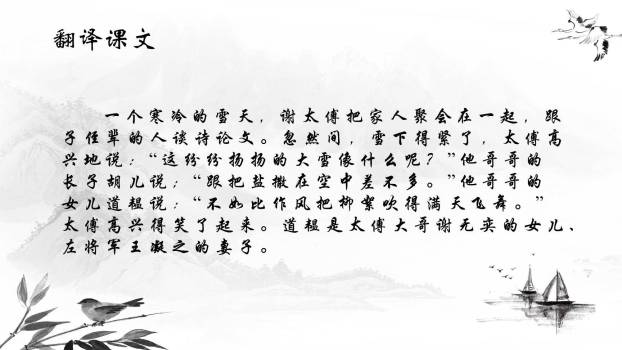 翻译课文
一个寒冷的雪天，谢太傅把家人聚会在一起，跟
子侄辈的人谈诗论文。忽然间，雪下得紧了，太傅高
兴地说：“这纷纷扬扬的大雪像什么呢？”他哥哥的
长子胡儿说：“跟把盐撒在空中差不多。”他哥哥的
女儿道韫说：“不如比作风把柳絮吹得满天飞舞。”
太傅高兴得笑了起来。道韫是太傅大哥谢无奕的女儿、
左将军王凝之的妻子。